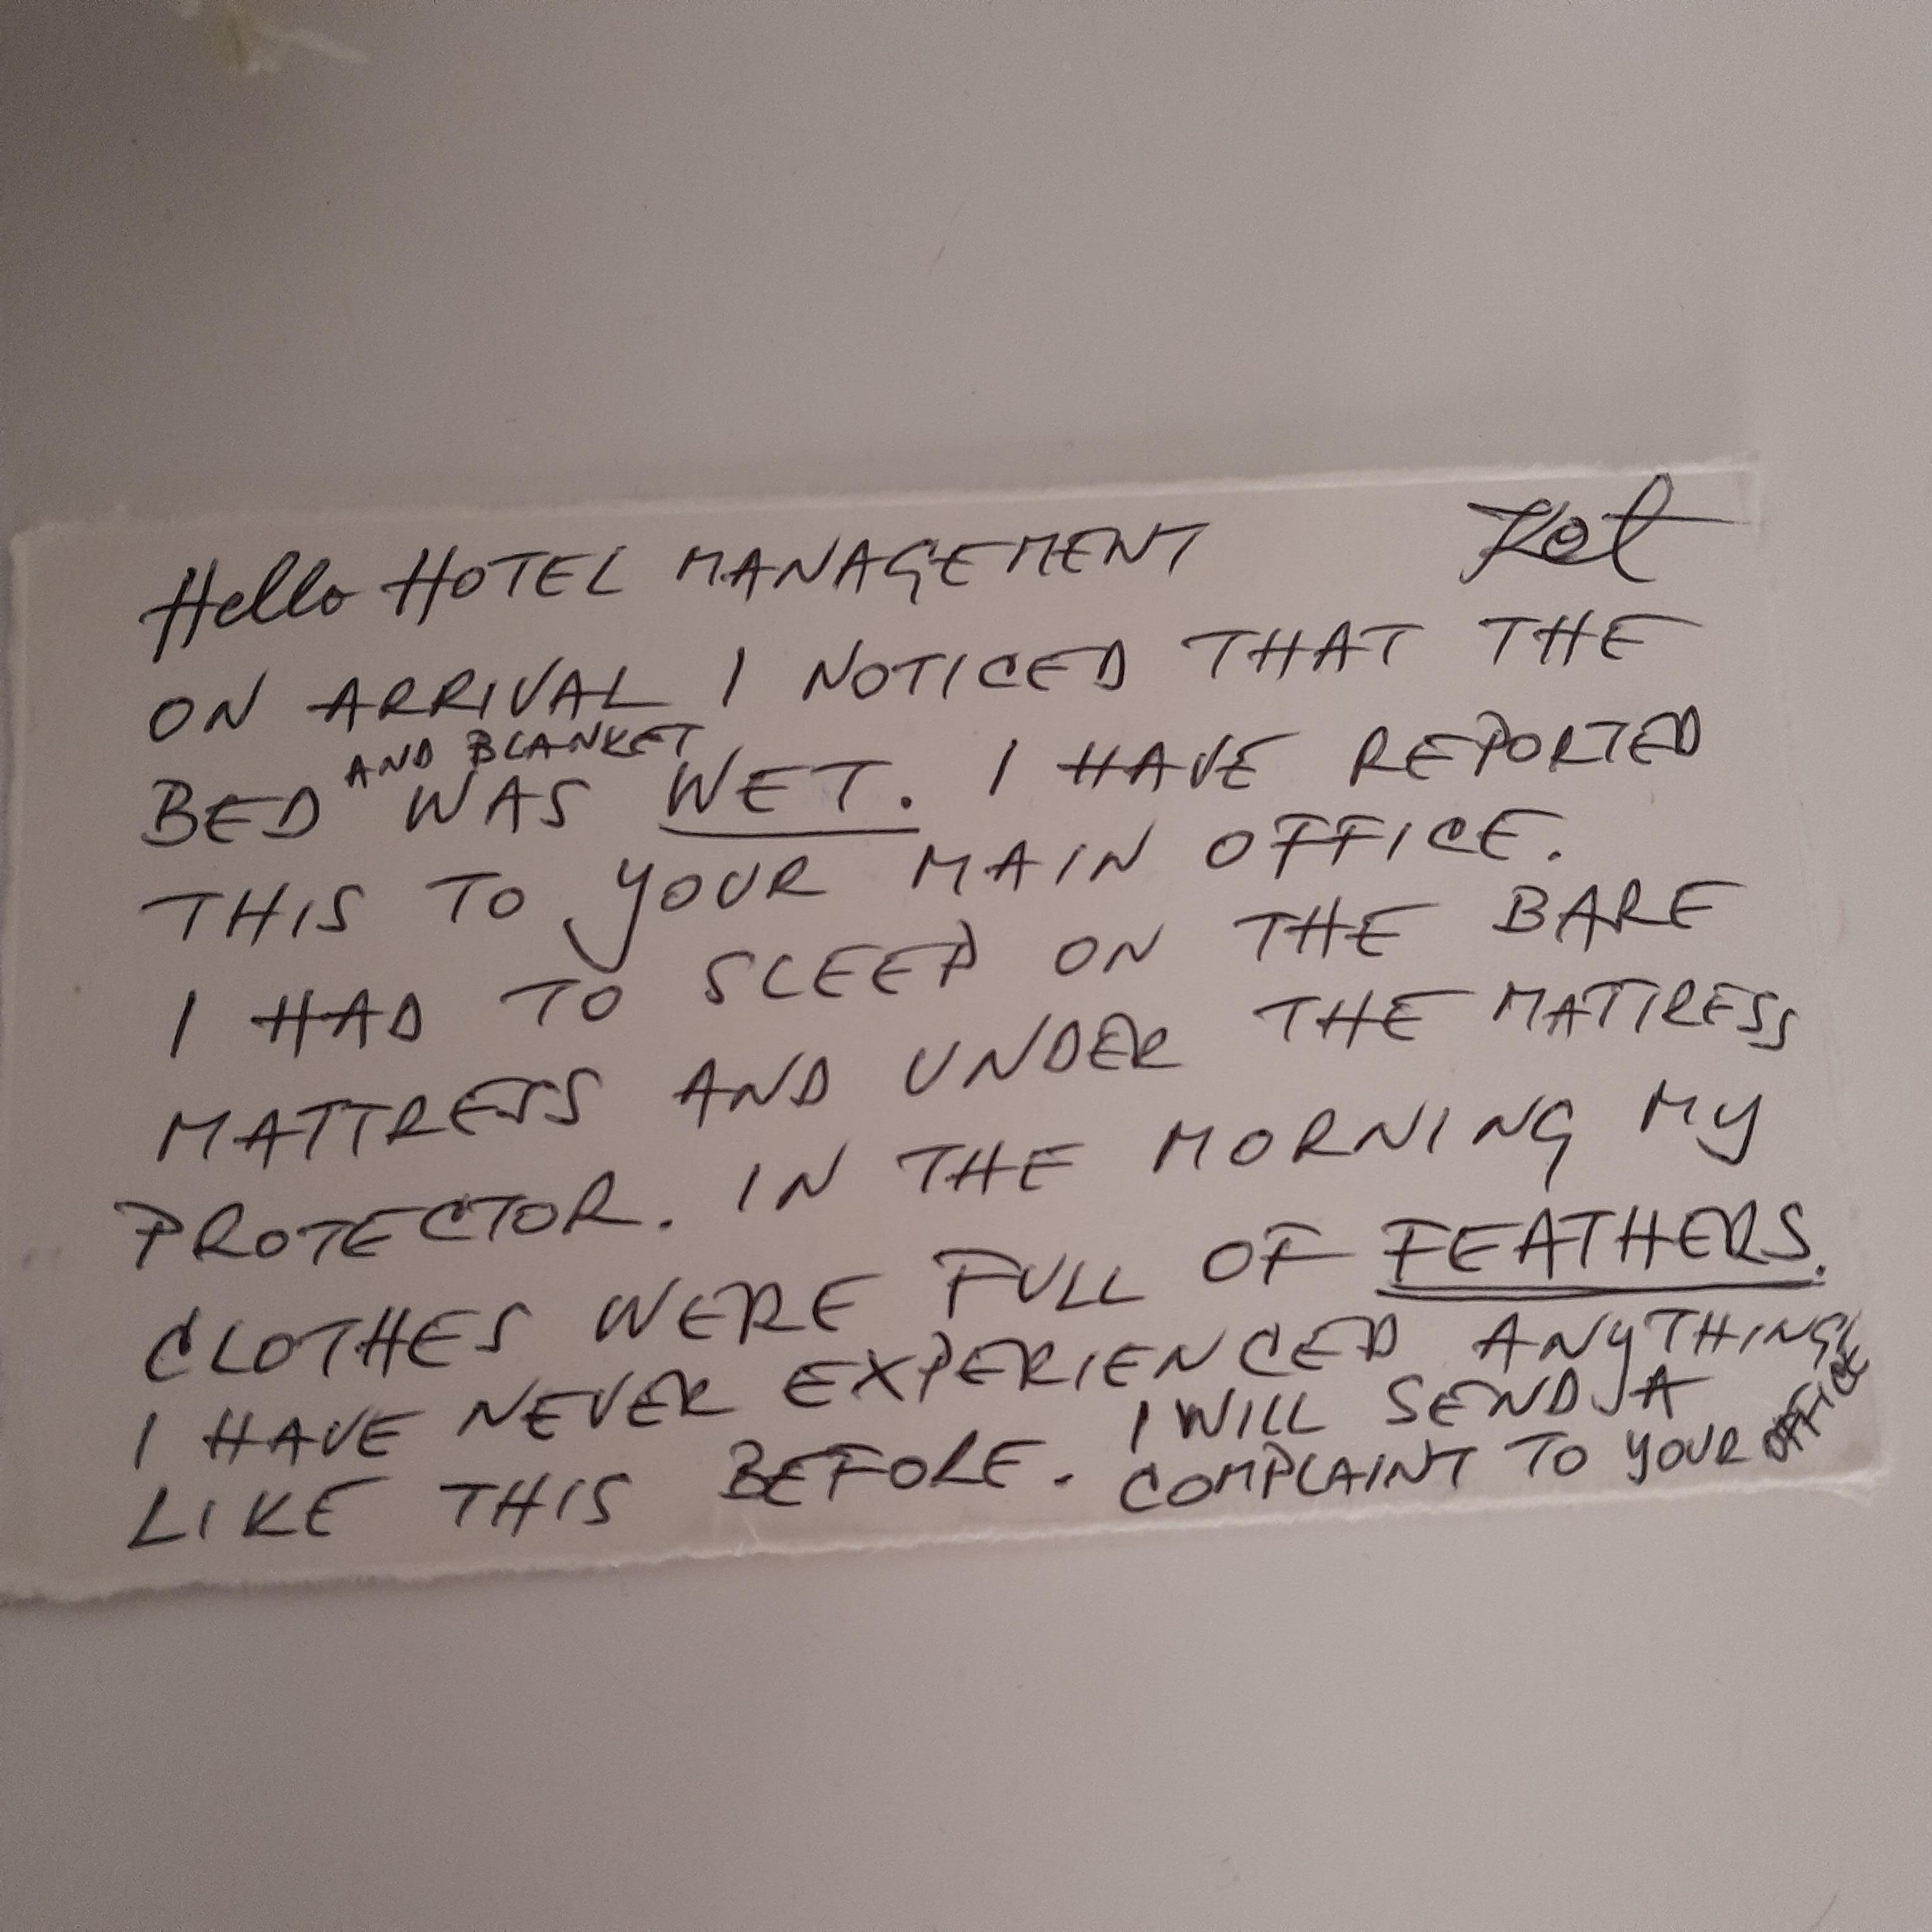 Hello HOTEL MANAGEMENT
ON ARRIVAL I NOTICED THAT THE
BED AND BLANKET WAS WET. I HAVE REPORTED
THIS TO YOUR MAIN OFFICE.
I HAD TO SLEEP ON THE BARE
MATTRESS AND UNDER THE MATTRESS
PROTECTOR. IN THE MORNING MY
CLOTHES WERE FULL OF FEATHERS.
I HAVE NEVER EXPERIENCED ANYTHING
LIKE THIS BEFORE. I WILL SEND A
COMPLAINT TO YOUR OFFICE